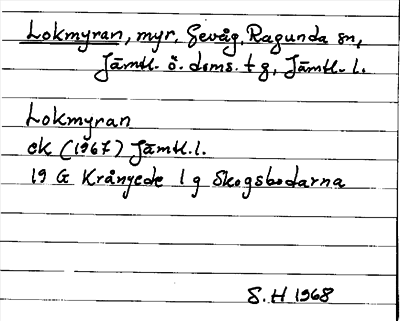 Lokmyran, myr, Gevåg, Ragunda sn,
Jämtl. ö. doms. tg, Jämtl. l.
Lokmyran
ek (1967) Jämtl. l.
19 G Krångede 1 g Skogsbodarna
S. H 1968